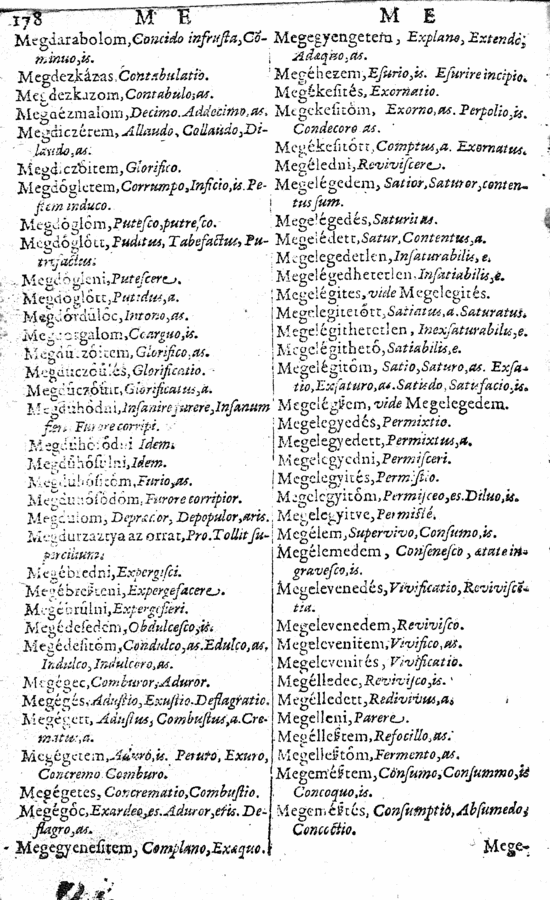 178 M E
M E
Megdarabolom, Concido infrusta, Cō-
minuo, is.
Megdezkázas, Contabulatio.
Megdezkazom, Contabulo, as.
Megdézmalom, Decimo. Addecimo, as.
Megdiczérem, Allaudo, Collaudo, Di-
laudo, as.
Megdiczöitem, Glorifico.
Megdögletem, Corrumpo, Inficio, is. Pe-
stem induco.
Megdöglöm, Putesco, putresco.
Megdöglött, Putidus, Tabefactus, Pu-
trefactus.
Megdögleni, Putescere.
Megdöglött, Putidus, a.
Megdördülöc, Intono, as.
Megdorgalom, Coarguo, is.
Megdüczöitem, Glorifico, as.
Megdüczöités, Glorificatio.
Megdüczöült, Glorificatus, a.
Megdühödni, Insanire, furere, Insanum
fieri. Furore corripi.
Megdühödödni Idem.
Megdühösülni, Idem.
Megdühösitem, Furio, as.
Megdühösödöm, Furore corripior.
Megdulom, Depraedor, Depopulor, aris.
Megdurzaztya az orrat, Pro. Tollit su-
perciliūm.
Megébredni, Expergisci.
Megébresteni, Expergefacere.
Megébrülni, Expergefieri.
Megédesedem, Obdulcesco, is.
Megédesitöm, Condulco, as. Edulco, as,
Indulco, Indulcoro, as.
Megégec, Comburor, Aduror.
Megégés, Adustio, Exustio. Deflagratio.
Megégett, Adustus, Combustus, a. Cre-
matus, a.
Megégetem, Aduro, is. Peruro, Exuro,
Concremo Comburo.
Megégetes, Concrematio, Combustio.
Megégöc, Exardeo, es. Aduror, eris. De-
flagro, as.
Megegyenesitem, Complano, Exaquo.
Megegyengetem, Explano, Extendo,
Adaquo, as.
Megéhezem, Esurio, is. Esurire incipio.
Megékesités, Exornatio.
Megékesitöm, Exorno, as. Perpolio, is.
Condecoro as.
Megékesitött, Comptus, a. Exornatus.
Megéledni, Reviviscere.
Megelégedem, Satior, Saturor, conten-
tus sum.
Megelégedés, Saturitas.
Megelégedett, Satur, Contentus, a.
Megelegedetlen, Insaturabilis, e.
Megelégedhetetlen, Insatiabilis, e.
Megelégites, vide Megelegités.
Megelegitetött, Satiatus, a. Saturatus.
Megelégithetetlen, Inexsaturabilis, e.
Megelégithetö, Satiabilis, e.
Megelégitöm, Satio, Saturo, as. Exsa-
tio, Exsaturo, as. Satiedo, Satisfacio, is.
Megelégsem, vide Megelegedem.
Megelegyedés, Permixtio.
Megelegyedett, Permixtus, a.
Megelegyedni, Permisceri.
Megelegyités, Permistio.
Megelegyitöm, Permisceo, es. Diluo, is.
Megelegyitve, Permistè.
Megélem, Supervivo, Consumo, is.
Megélemedem, Consenesco, atate in-
gravesco, is.
Megelevenedés, Vivificatio, Reviviscē-
tia.
Megelevenedem, Revivisco.
Megelevenitem, Vivifico, as.
Megelevenités, Vivificatio.
Megélledec, Revivisco, is.
Megélledett, Redivivus, a,
Megelleni, Parere.
Megéllestem, Refocillo, as.
Megellestöm, Fermento, as.
Megeméstem, Consumo, Consummo, is
Concoquo, is.
Megeméstés, Consumptio, Absumedo,
Concoctio.
Mege-